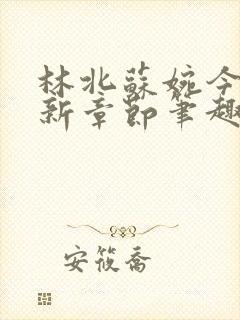 林北蘇婉今
新章節筆趣
安筱喬